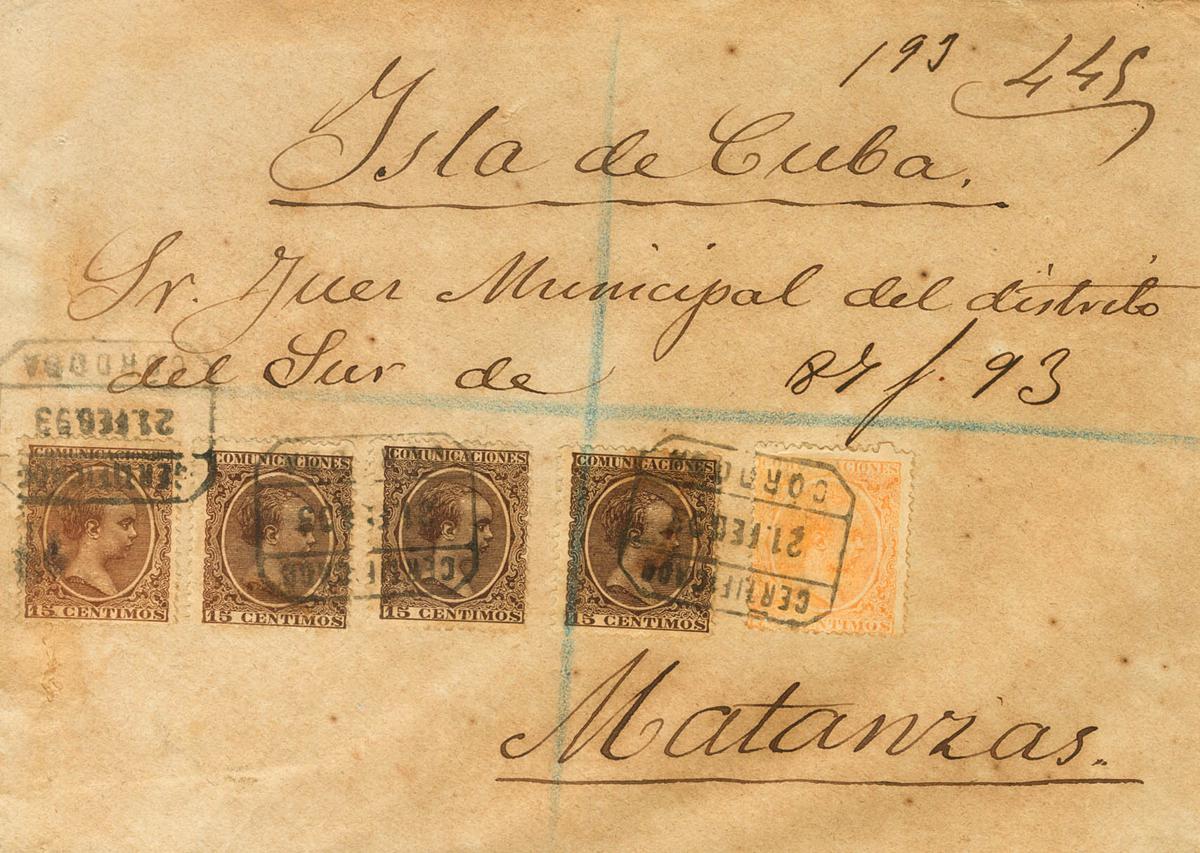 193 445
Isla de Cuba.
Sr. Juez Municipal del distrito
del Sur de 87 f. 93
CORDOBA
21 FEB 93
CERTIFICADO
COMUNICACIONES
15 CENTIMOS
COMUNICACIONES
15 CENTIMOS
CERTIFICADO
COMUNICACIONES
15 CENTIMOS
COMUNICACIONES
15 CENTIMOS
CORDOBA
21 FEB 93
CERTIFICADO
CIONES
NTIMOS
Matanzas.